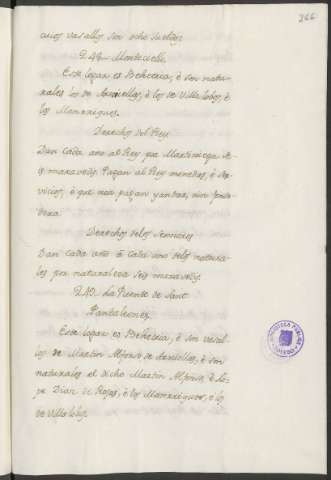 366
cuios vasallos son ocho sueldos
Este logar es Behetria, è son natu-
rales los de è los de Villalobos, è
los Manrriques.
Derechos del Rey
Dan cada año al Rey por Martiniega
maravedis. Pagan al Rey monedas, è ser-
vicios, è que non pagan yantar, nin fonsa-
dera.
Derechos delos Sennores
Dan cada año a cada uno delos natura-
les por naturaleza seis maravedis.
La Puente de Sant
Pantaleonez
Este logar es Behetria, è son vasal-
los de Martin Alfonso de è son
naturales el dicho Martin Alfonso, è Lo-
pe Diaz de Rojas, è los Manrriques, è los
de Villalobos.
BIBLIOTECA PUBLICA
TOLEDO